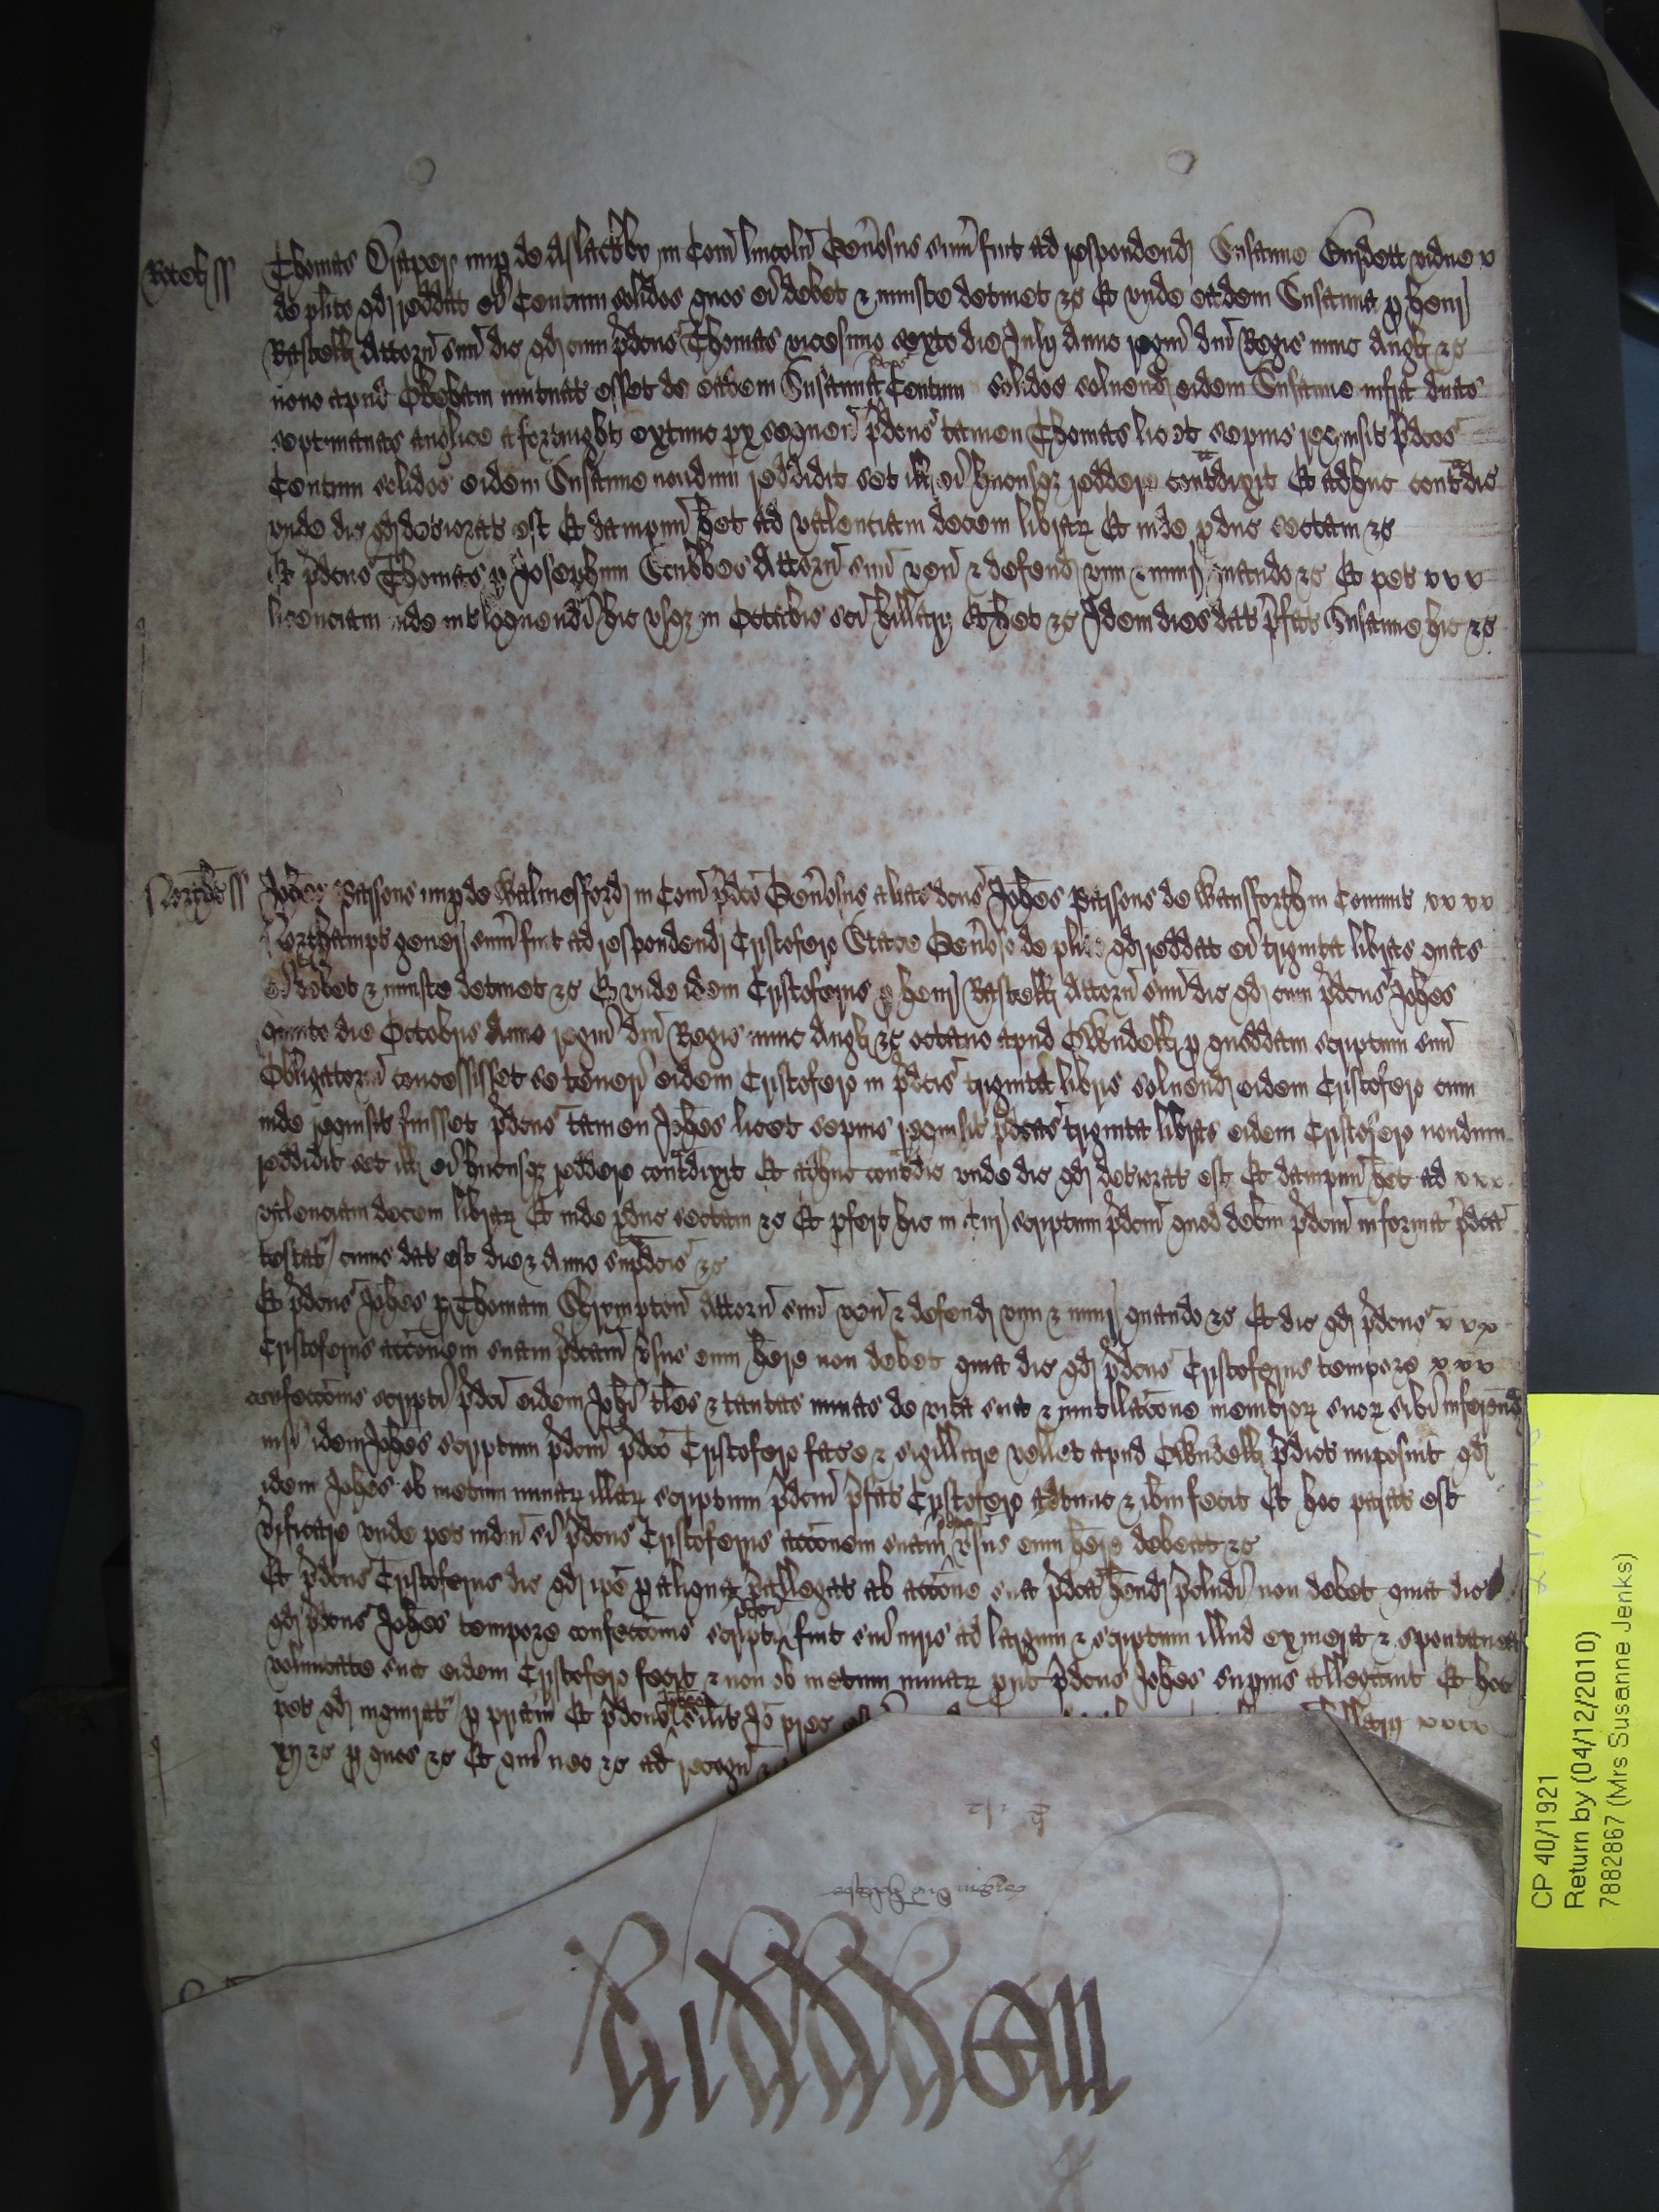 Rotel ss Thomas Draper nup de Aslackby in Com Lincoln Gen̄osus sum̄ fuit ad respondend Susanne Burdett vidue v
de plito qd reddat ei Centum solidos quos ei debet & iniuste detinet &c Et unde eadem Susanna p Henr
Rastell Attorn suu dic qd cum p̄dcus Thomas vicesimo sexto die July Anno regni dni Regis nunc Angl &c
nono apud Okeham mutuat esset de eadem Susanna Centum solidos solvend eidem Susanne infra duas
septimanas anglice a fortnight extunc px sequen p̄dcus tamen Thomas licet sepius requisit p̄dcos
Centum solidos eidem Susanne nondum reddidit set ill ei hucusq reddere cont̄dixit Et adhuc cont̄dic
unde dic qd deteriorat est Et dampnu h̄et ad valenciam decem librar Et inde p̄duc sectam &c
Et p̄dcus Thomas p Josephum Attorn suu ven & defend vim & iniur quando &c Et pet v v v
licenciam inde int̄loquendi hic usq in Octabis sci Hillarij Et h̄et &c Idem dies dat p̄fate Susanne hic &c
North̄t ss Joh̄es Parsons nup de Walmesford in Com p̄dco Gen̄osus alias dcus Joh̄es Parsons de Wansforth in Comit vv vv
Northampt gener sum̄ fuit ad respondend Cristofero Gen̄oso de plito qd reddat ei triginta libras quas
ei debet & iniuste detinet &c Et unde idem Cristoferus p Henr Rastell Attorn suu dic qd cum p̄dcus Joh̄es
quinto die Octobris Anno regni dni Regis nunc Angl &c octavo apud Owndell p quoddam scriptum suu
Obligatoriu concessisset se teneri eidem Cristofero in p̄dcis triginta libris solvend eidem Cristofero cum
inde requisit fuisset p̄dcus tamen Joh̄es licet sepius requisit p̄dcas triginta libras eidem Cristofero nondum
reddidit set ill ei hucusq reddere cont̄dixit Et adhuc cont̄dic unde dic qd deteriorat est Et dampnu h̄et ad v v v
valenciam decem librar Et inde p̄duc sectam &c Et pfert hic in Cur scriptum p̄dcm quod debm p̄dcm in forma p̄dca
testat cuius dat est die & Anno sup̄dcis &c
Et p̄dcus Joh̄es p Thomam Shrympton Attorn suu ven & defend vim & iniur quando &c Et dic qd p̄dcus v v x
Cristoferus acc̄onem suam p̄dcam v̄sus eum h̄ere non debet quia dic qd p̄dcus Cristoferus tempore v v v
confecc̄onis scripti p̄dci eidem Joh̄i t̄les & tantas minas de vita sua & mutilac̄one membror suor sibi inferend
nisi idem Joh̄es scriptum p̄dcm p̄dco Cristofero fac̄e & sigillare vellet apud Owndell p̄dict imposuit qd
idem Joh̄es ob metum minar illar scriptum p̄dcm p̄fat Cristofero adtunc & ib̄m fecit Et hoc parat est
v̄ificare unde pet iudm si p̄dcus Cristoferus acc̄onem suam v̄sus eum h̄ere debeat &c
Et p̄dcus Cristoferus dic qd ip̄e p aliqua p̄allegat ab acc̄one sua p̄dca h̄end p̄cludi non debet quia dic
qd p̄dcus Joh̄es tempore confecc̄onis scripti p̄dci fuit sui iuris ad largum & scriptum illud ex mera & spontanea
voluntate sua eidem Cristofero fecit & non ob metum minar put p̄dcus Joh̄es superius allegavit Et hoc
pet qd inquirat p priam Et p̄dcus Joh̄es silit Io prec est
xij &c p quos &c Et qui nec &c ad recogn
CP 40/1921
Return by (04/12/2010)
7882867 (Mrs Susanne Jenks)